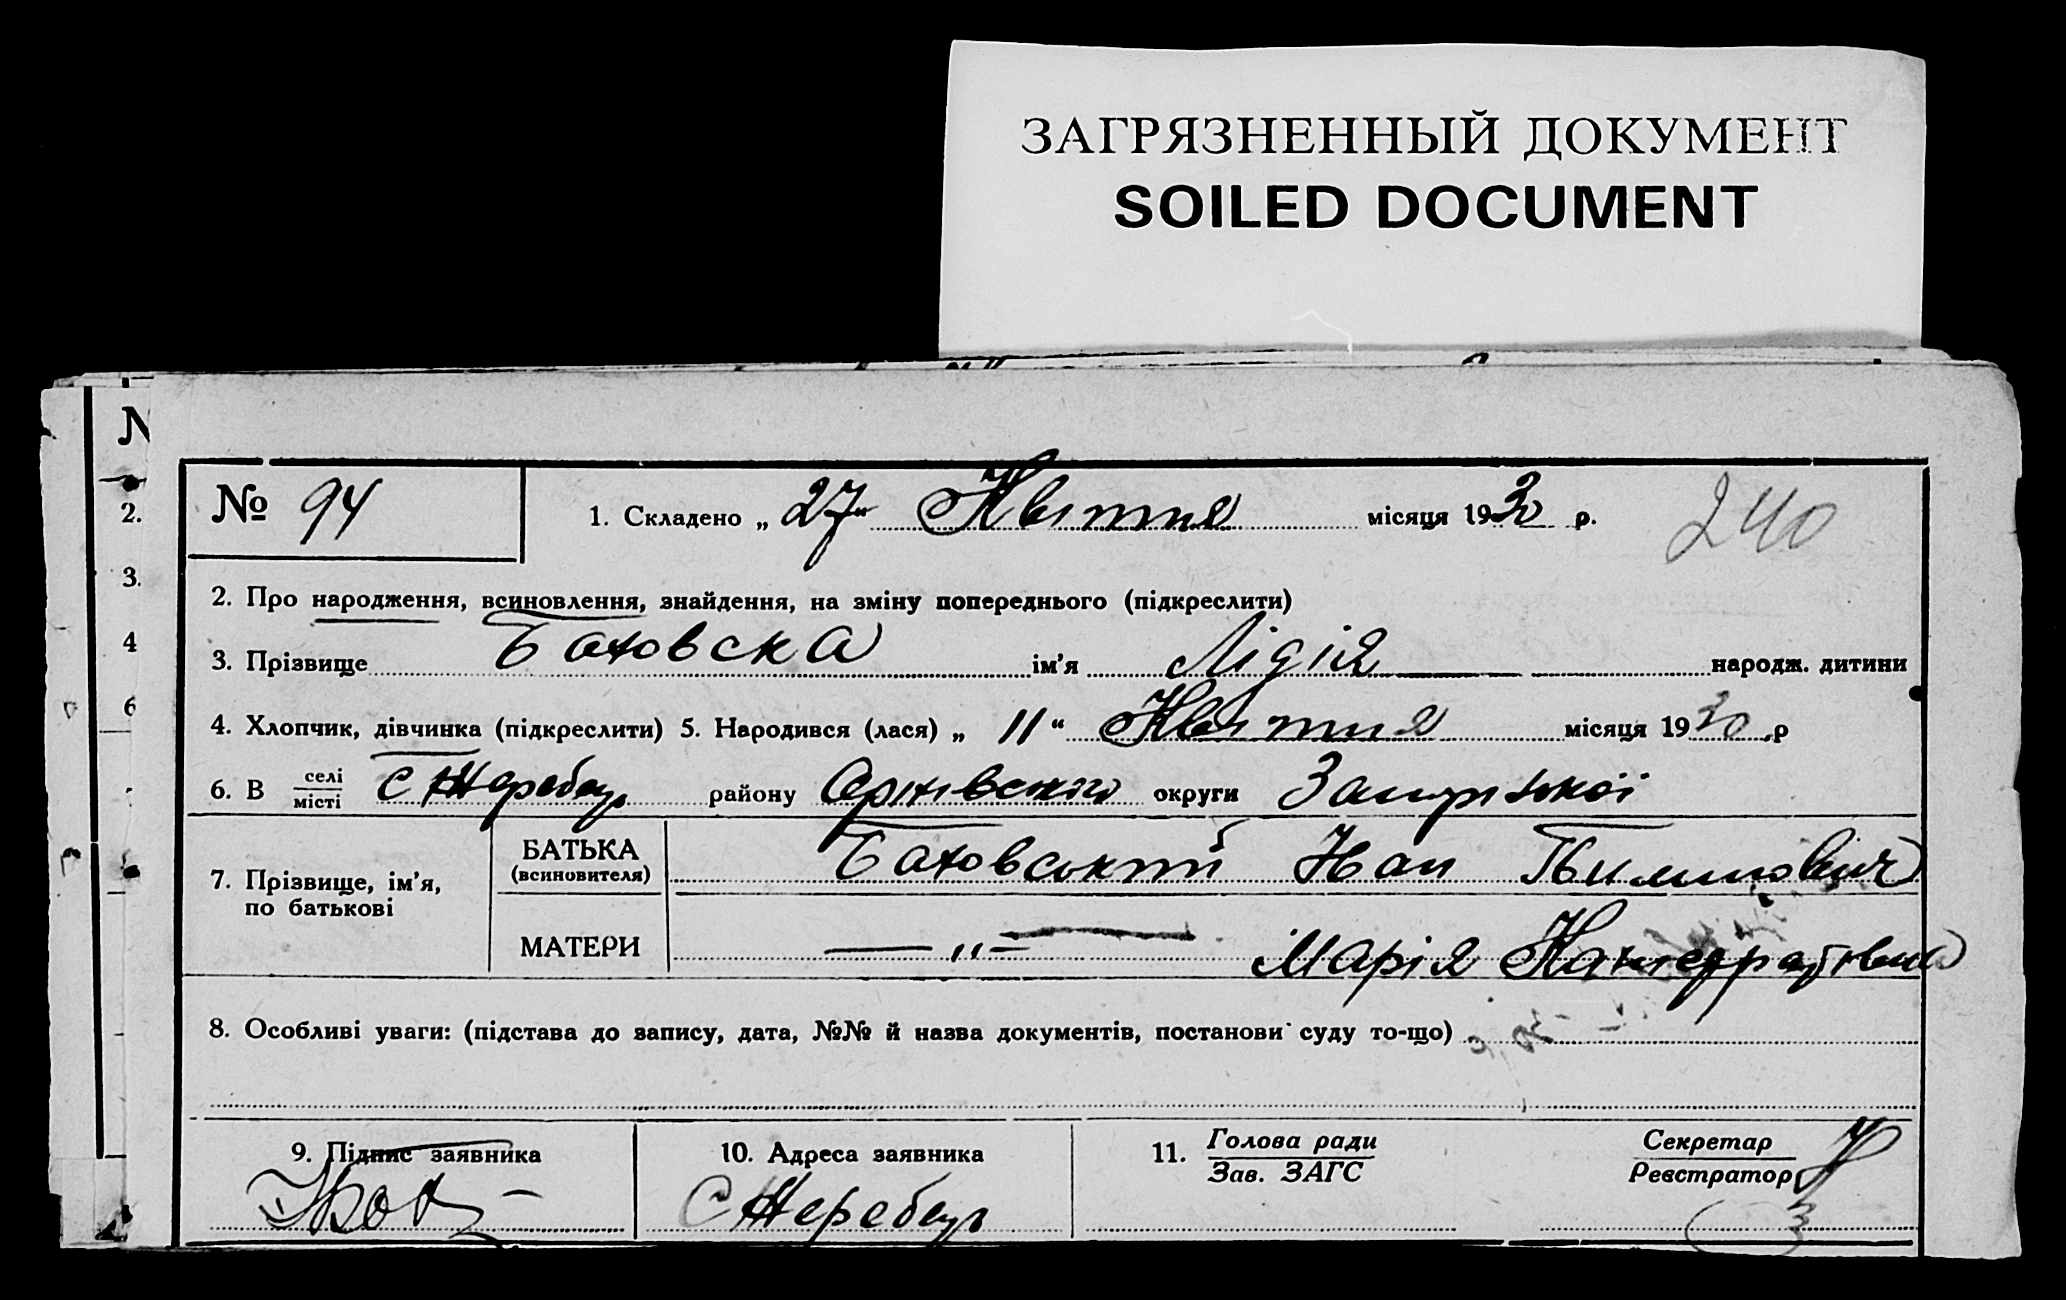 ЗАГРЯЗНЕННЫЙ ДОКУМЕНТ
SOILED DOCUMENT
№ 94
1. Складено „ 27 “ Квітня місяця 1930 р.
240
2. Про народження, всиновлення, знайдення, на зміну попереднього (підкреслити)
3. Прізвище Батовска ім’я Лідія народж. дитини
4. Хлопчик, дівчинка (підкреслити) 5. Народився (лася) „ 11 “ Квітня місяця 1930 р
6. В селі
місті С Жеребець району округи
7. Прізвище, ім’я,
по батькові
БАТЬКА
(всиновителя)
Батовський Іван
МАТЕРИ
— „ — Марія
8. Особливі уваги: (підстава до запису, дата, №№ й назва документів, постанови суду то-що)
9. Підпис заявника
10. Адреса заявника
С Жеребець
11. Голова ради
Зав. ЗАГС
Секретар
Реєстратор
№
2.
3.
4
6